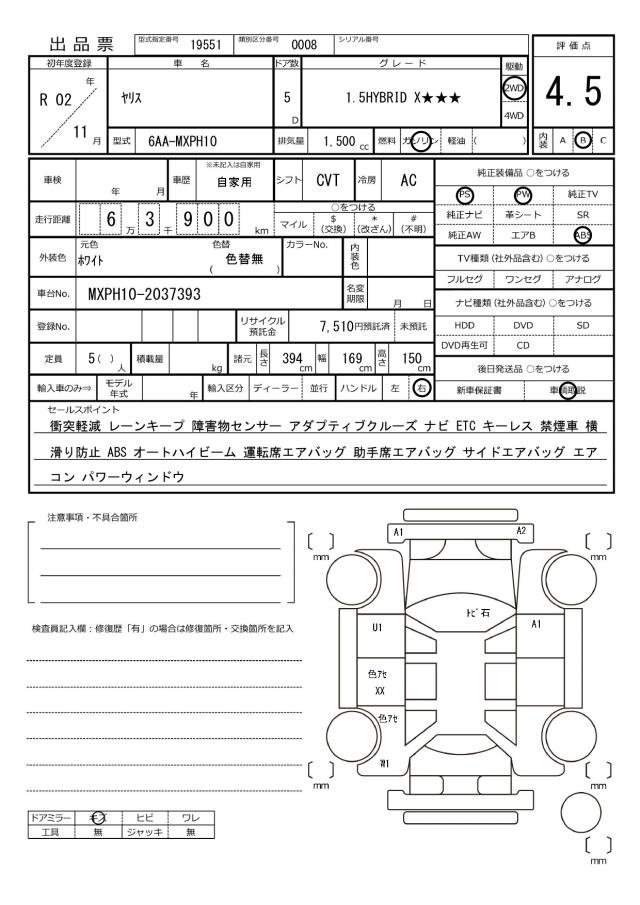 出品票 型式指定番号 19551 類別区分番号 0008 シリアル番号
評価点
4.5
内装 A B C
初年度登録 車名 ドア数 グレード 駆動
R 02 年 11 月 ヤリス 5 D 1.5HYBRID X★★★ 2WD 4WD
型式 6AA-MXPH10 排気量 1,500 cc 燃料 ガソリン 軽油 ( )
車検 年 月 車歴 ※未記入は自家用 自家用 シフト CVT 冷房 AC
走行距離 6 万 3 千 9 0 0 km ○をつける
マイル $ (交換) * (改ざん) # (不明)
外装色 元色 ホワイト 色替 色替無 ( ) カラーNo. 内装色
車台No. MXPH10-2037393 名変期限 月 日
登録No. リサイクル預託金 7,510円預託済 未預託
定員 5( )人 積載量 kg 諸元 長さ 394 cm 幅 169 cm 高さ 150 cm
輸入車のみ⇒ モデル年式 年 輸入区分 ディーラー 並行 ハンドル 左 右
純正装備品 ○をつける
PS PW 純正TV
純正ナビ 革シート SR
純正AW エアB ABS
TV種類(社外品含む)○をつける
フルセグ ワンセグ アナログ
ナビ種類(社外品含む)○をつける
HDD DVD SD
DVD再生可 CD
後日発送品 ○をつける
新車保証書 車輌取説
セールスポイント
衝突軽減 レーンキープ 障害物センサー アダプティブクルーズ ナビ ETC キーレス 禁煙車 横
滑り防止 ABS オートハイビーム 運転席エアバッグ 助手席エアバッグ サイドエアバッグ エア
コン パワーウィンドウ
注意事項・不具合箇所
検査員記入欄：修復歴「有」の場合は修復箇所・交換箇所を記入
ドアミラー キズ ヒビ ワレ
工具 無 ジャッキ 無
A1 A2
mm mm
トビ石
U1 A1
色アセ
XX
色アセ
W1
mm mm
mm